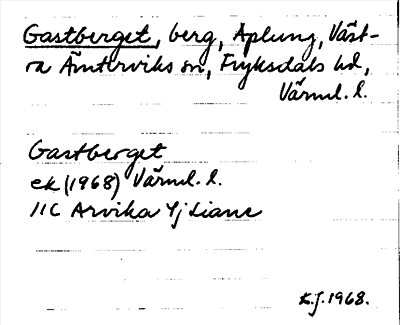 Gastberget, berg, Aplung, Väst-
ra Ämterviks sn, Fryksdals hd,
Värml. l.
Gastberget
ek (1968) Värml. l.
11C Arvika
K.J. 1968.